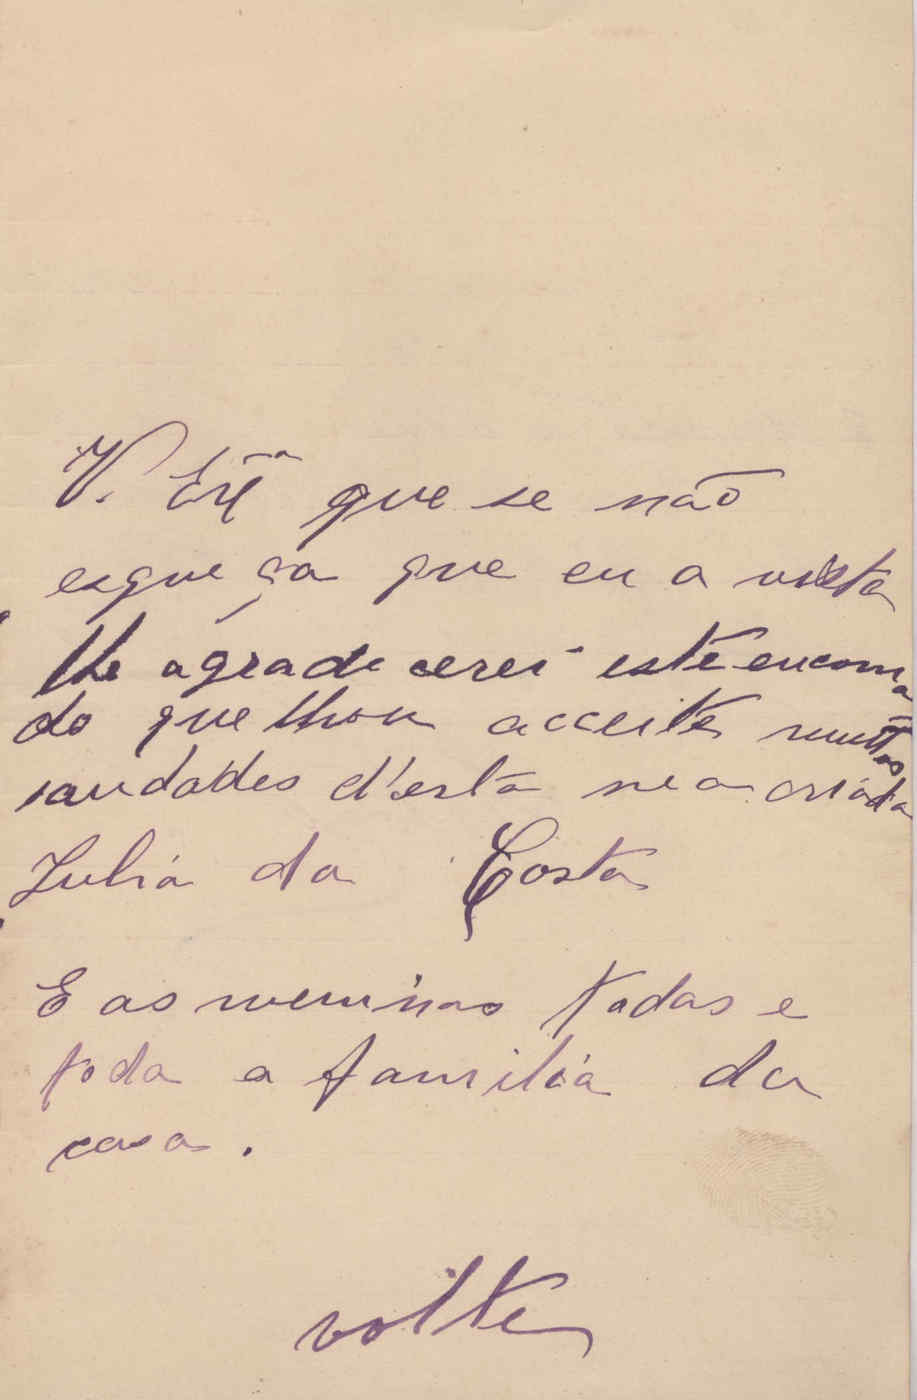 V. Exª que se não
esque ça que eu a vista
lhe agrade cerei este encom
do que lhou acceite muitas
saudades d'esta sua criada
Julia da Costa
E as meninas todas e
toda a familia da
casa.
volte